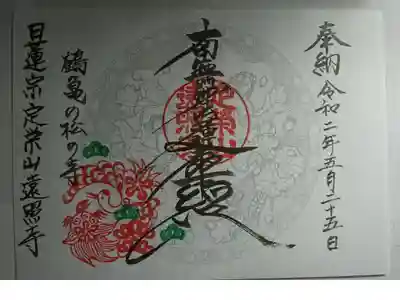 奉納 令和二年五月二十五日
南無妙法蓮華経
鶴亀の松の寺
日蓮宗定栄山遠照寺